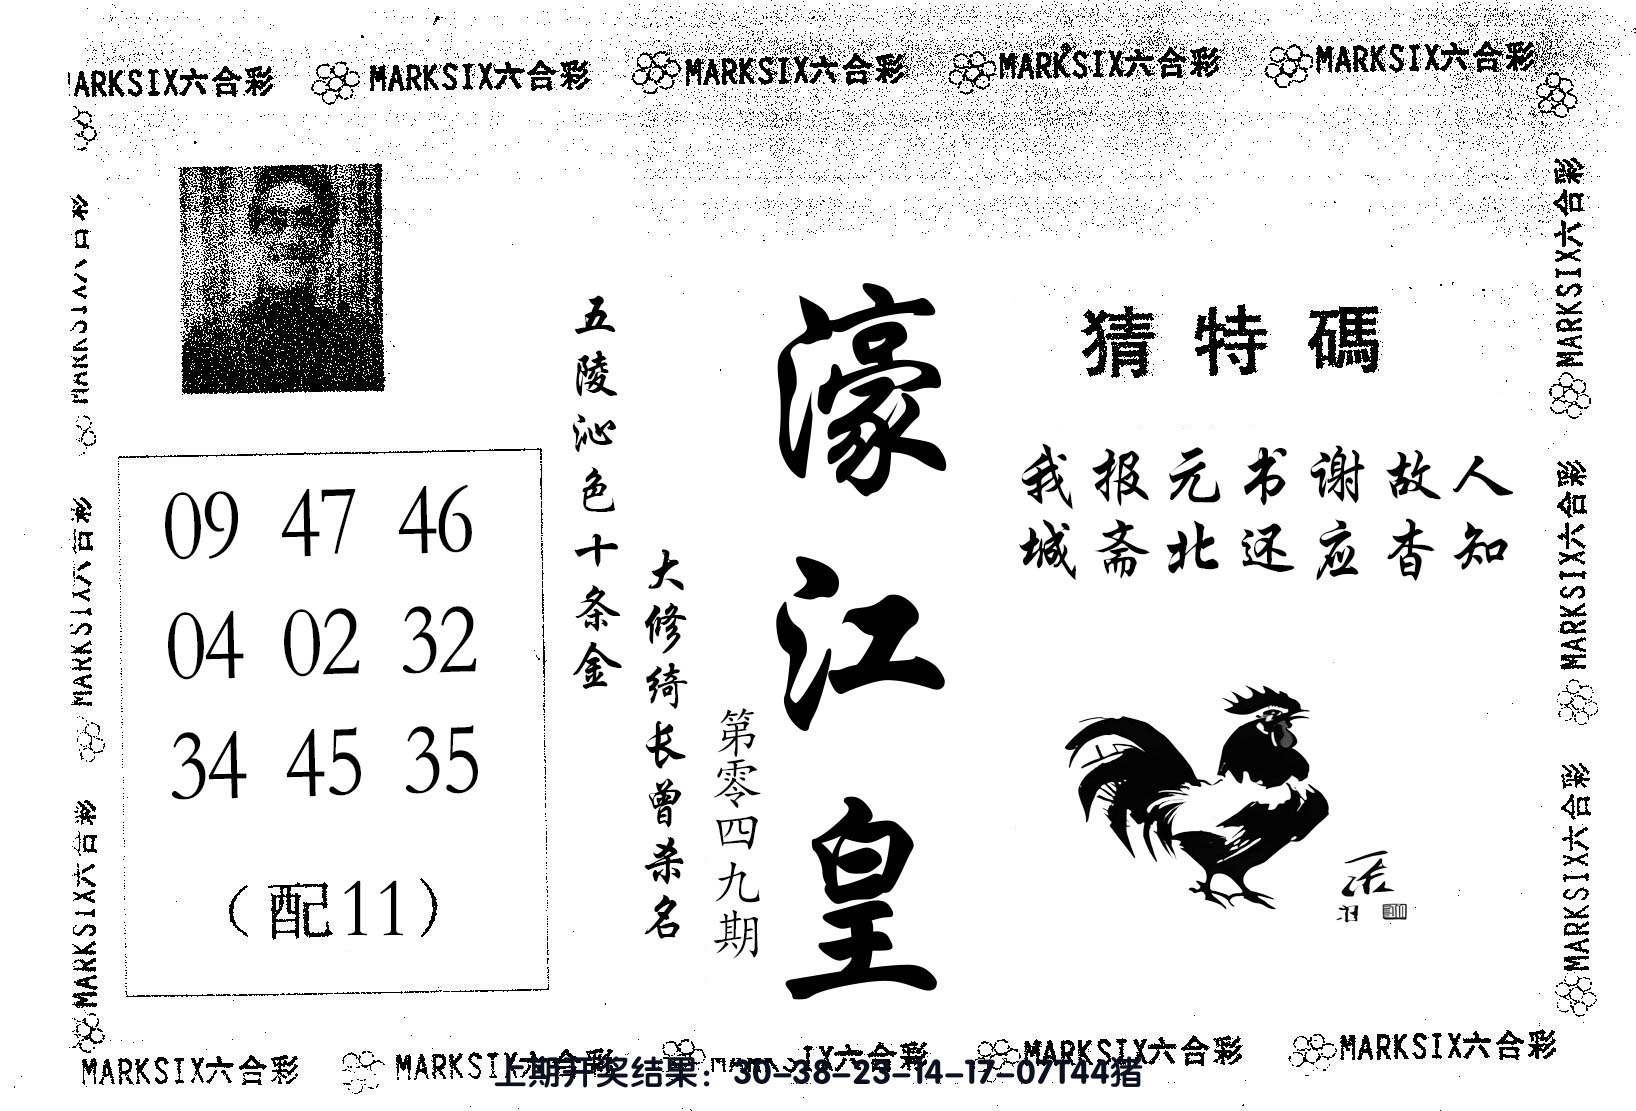 MARKSIX六合彩 MARKSIX六合彩 MARKSIX六合彩 MARKSIX六合彩 MARKSIX六合彩
猜特碼
我报元书谢故人
城斋北还应杳知
濠江皇
第零四九期
大修绮长曾杀名
五陵沁色十条金
09 47 46
04 02 32
34 45 35
（配11）
MARKSIX六合彩
MARKSIX六合彩
MARKSIX六合彩
MARKSIX六合彩
MARKSIX六合彩
MARKSIX六合彩
MARKSIX六合彩 MARKSIX六合彩 MARKSIX六合彩 MARKSIX六合彩 MARKSIX六合彩
上期开奖结果：30-38-23-14-17-07T44猪